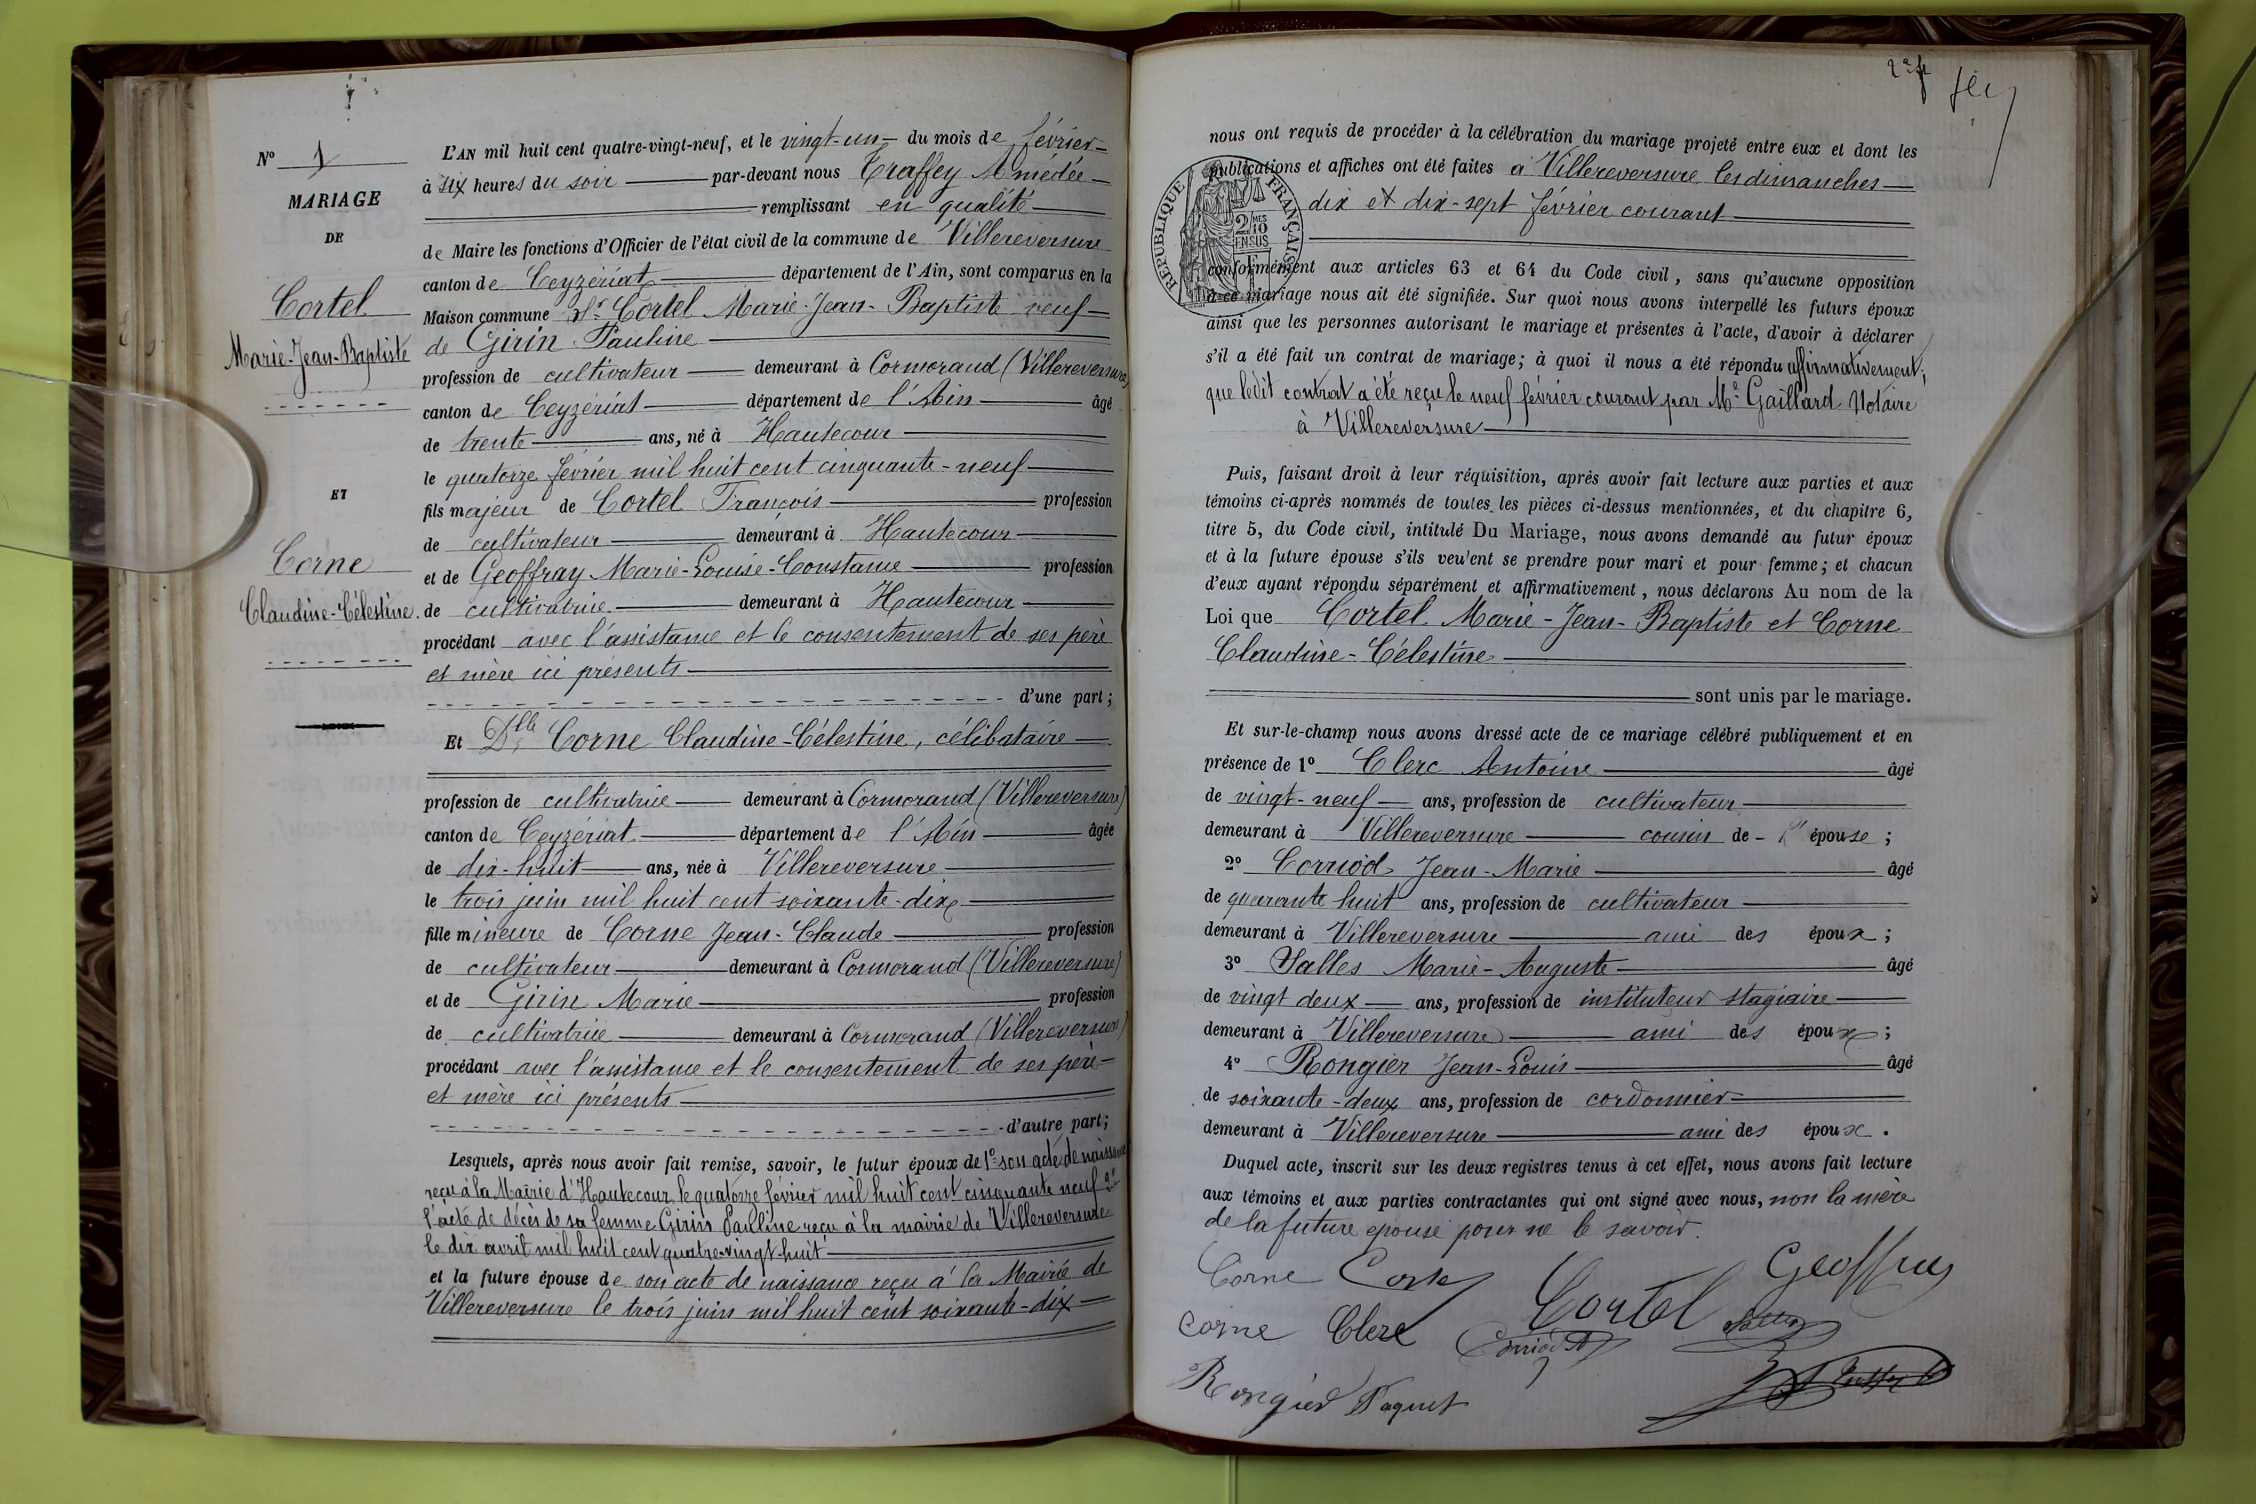 N° 1
MARIAGE
DE
Cortel
Marie-Jean-Baptiste
ET
Corne
Claudine-Célestine.
L'AN mil huit cent quatre-vingt-neuf, et le vingt-un du mois de février
à six heures du soir par-devant nous Traffey Amédée
remplissant en qualité
de Maire les fonctions d'Officier de l'état civil de la commune de Villereversure
canton de Ceyzériat département de l'Ain, sont comparus en la
Maison commune Sr Cortel Marie-Jean-Baptiste veuf
de Girin Pauline
profession de cultivateur demeurant à Cormorand (Villereversure)
canton de Ceyzériat département de l'Ain âgé
de trente ans, né à Hautecour
le quatorze février mil huit cent cinquante-neuf
fils majeur de Cortel François profession
de cultivateur demeurant à Hautecour
et de Geoffray Marie-Louise-Constance profession
de cultivatrice demeurant à Hautecour
procédant avec l'assistance et le consentement de ses père
et mère ici présents
d'une part ;
Et Dlle Corne Claudine-Célestine, célibataire
profession de cultivatrice demeurant à Cormorand (Villereversure)
canton de Ceyzériat département de l'Ain âgée
de dix-huit ans, née à Villereversure
le trois juin mil huit cent soixante-dix
fille mineure de Corne Jean-Claude profession
de cultivateur demeurant à Cormorand (Villereversure)
et de Girin Marie profession
de cultivatrice demeurant à Cormorand (Villereversure)
procédant avec l'assistance et le consentement de ses père
et mère ici présents
d'autre part ;
Lesquels, après nous avoir fait remise, savoir, le futur époux de 1° son acte de naissance
reçu à la Mairie d'Hautecour le quatorze février mil huit cent cinquante neuf 2°
l'acte de décès de sa femme Girin Pauline reçu à la mairie de Villereversure
le dix avril mil huit cent quatre-vingt-huit
et la future épouse de son acte de naissance reçu à la Mairie de
Villereversure le trois juin mil huit cent soixante-dix
nous ont requis de procéder à la célébration du mariage projeté entre eux et dont les
publications et affiches ont été faites à Villereversure les dimanches
dix et dix-sept février courant
RÉPUBLIQUE FRANÇAISE
2/10 EN SUS
conformément aux articles 63 et 64 du Code civil, sans qu'aucune opposition
à ce mariage nous ait été signifiée. Sur quoi nous avons interpellé les futurs époux
ainsi que les personnes autorisant le mariage et présentes à l'acte, d'avoir à déclarer
s'il a été fait un contrat de mariage ; à quoi il nous a été répondu affirmativement ;
que ledit contrat a été reçu le neuf février courant par Me Gaillard Notaire
à Villereversure
Puis, faisant droit à leur réquisition, après avoir fait lecture aux parties et aux
témoins ci-après nommés de toutes les pièces ci-dessus mentionnées, et du chapitre 6,
titre 5, du Code civil, intitulé Du Mariage, nous avons demandé au futur époux
et à la future épouse s'ils veulent se prendre pour mari et pour femme ; et chacun
d'eux ayant répondu séparément et affirmativement, nous déclarons Au nom de la
Loi que Cortel Marie-Jean-Baptiste et Corne
Claudine-Célestine
sont unis par le mariage.
Et sur-le-champ nous avons dressé acte de ce mariage célébré publiquement et en
présence de 1° Clerc Antoine âgé
de vingt-neuf ans, profession de cultivateur
demeurant à Villereversure cousin de l'épouse ;
2° Corriod Jean-Marie âgé
de quarante huit ans, profession de cultivateur
demeurant à Villereversure ami des époux ;
3° Salles Marie-Auguste âgé
de vingt deux ans, profession de instituteur stagiaire
demeurant à Villereversure ami des époux ;
4° Rongier Jean-Louis âgé
de soixante-deux ans, profession de cordonnier
demeurant à Villereversure ami des époux.
Duquel acte, inscrit sur les deux registres tenus à cet effet, nous avons fait lecture
aux témoins et aux parties contractantes qui ont signé avec nous, non la mère
de la future épouse pour ne le savoir.
Corne Cortel Cortel Geoffray
Corne Clerc Corriod Salles
Rongier Paquet